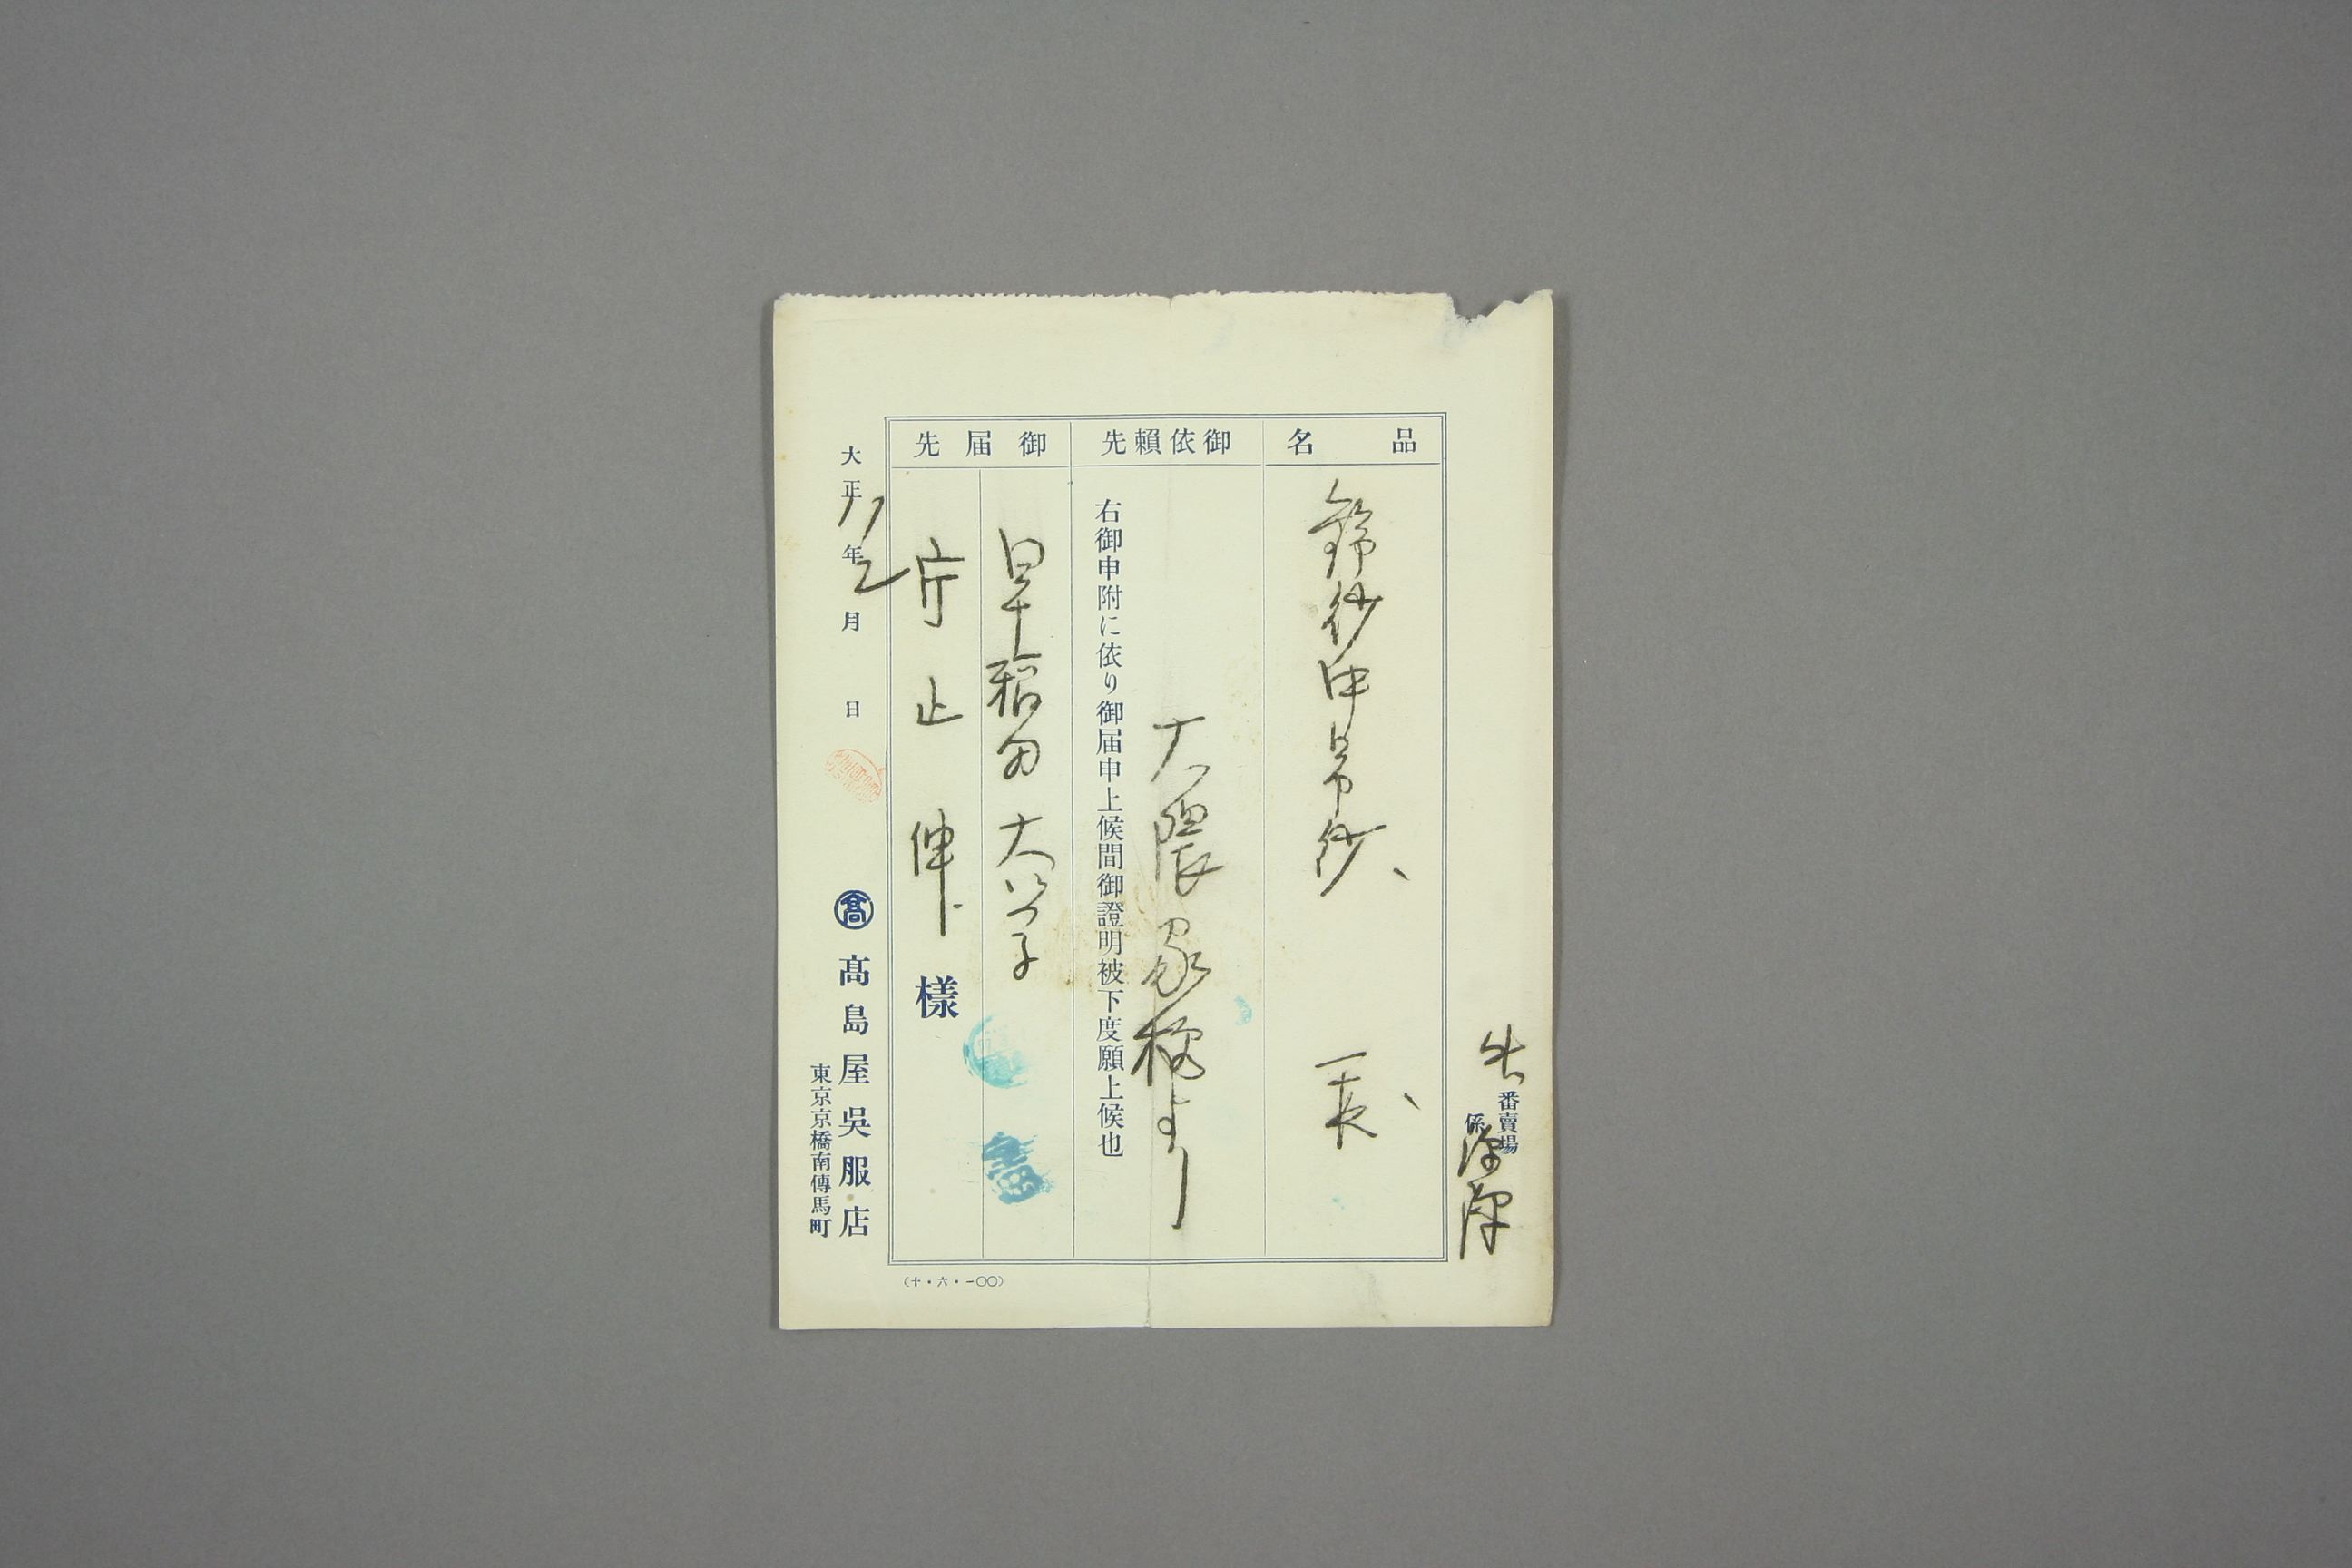 番賣場
係
品名
錦紗中帛紗、
一表、
御依賴先
大隈家様より
右御申附に依り御届申上候間御證明被下度願上候也
御届先
早稲田大学
樣
大正11年2月日
髙
髙島屋吳服店
東京京橋南傳馬町
(十・六・一〇〇)